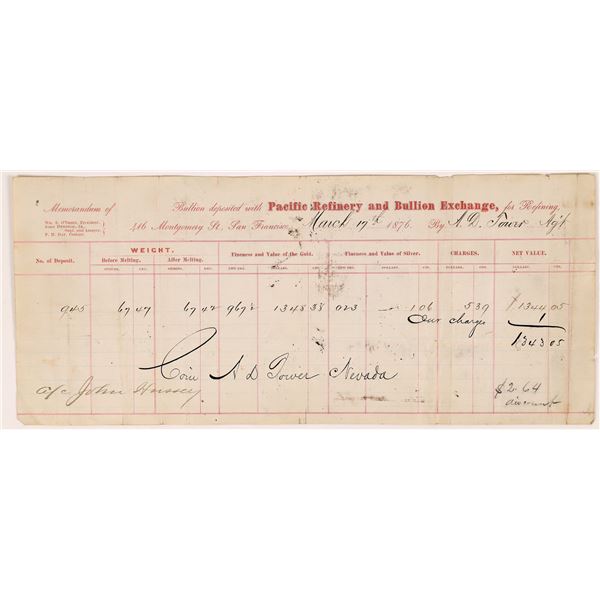 Memorandum of Bullion deposited with Pacific Refinery and Bullion Exchange, for Refining,
Wm. S. O'Brien, President.
416 Montgomery St., San Francisco, March 17th 1876. By A. D. Tower Ag't
No. of Deposit. WEIGHT. Fineness and Value of the Gold. Fineness and Value of Silver. CHARGES. NET VALUE.
Before Melting. After Melting.
OUNCES. DEC. OUNCES. DEC. DOLLARS. CTS. DOLLARS. CTS. DOLLARS. CTS. DOLLARS. CTS.
945 67 47 67 42 967½ 1348 38 023 1 06 5 39 $1344 05
Our charge 1
1343 05
Coin A D Power Nevada
a/c John Hussey
$2.64
discount